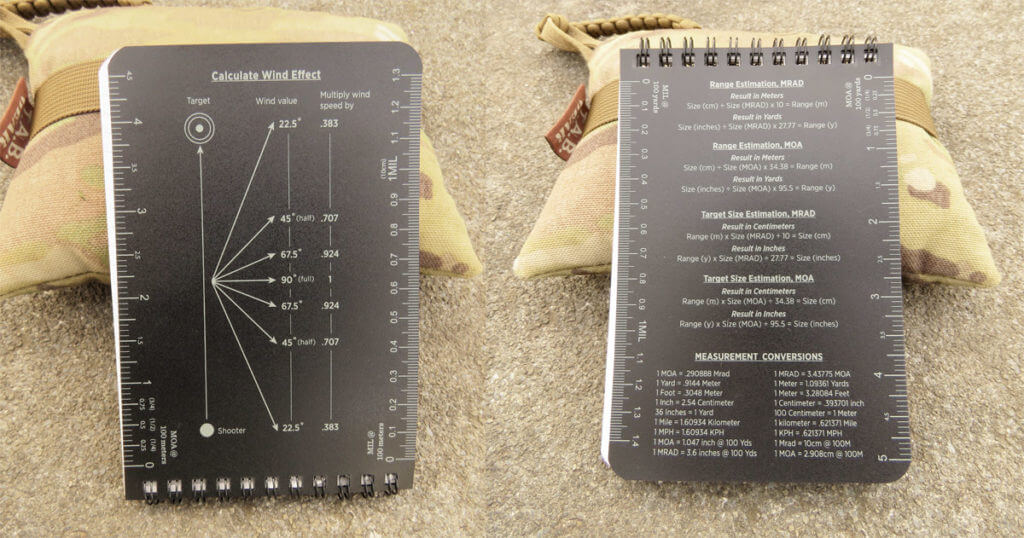 Calculate Wind Effect
Target
Wind value
Multiply wind
speed by
22.5° .383
45° (half) .707
67.5° .924
90° (full) 1
67.5° .924
45° (half) .707
22.5° .383
Shooter
4.5
4
3.5
3
2.5
2
1.5
1
0.75 (3/4)
0.5 (1/2)
0.25 (1/4)
0
MOA@
100 meters
1.3
1.2
1.1
1MIL
(10cm)
0.9
0.8
0.7
0.6
0.5
0.4
0.3
0.2
0.1
0
MIL@
100 meters
MIL@
100 yards
0
0.1
0.2
0.3
0.4
0.5
0.6
0.7
0.8
0.9
1MIL
1.1
1.2
1.3
1.4
MOA@
100 yards
0
(1/4) 0.25
(1/2) 0.5
(3/4) 0.75
1
1.5
2
2.5
3
3.5
4
4.5
5
Range Estimation, MRAD
Result in Meters
Size (cm) ÷ Size (MRAD) x 10 = Range (m)
Result in Yards
Size (inches) ÷ Size (MRAD) x 27.77 = Range (y)
Range Estimation, MOA
Result in Meters
Size (cm) ÷ Size (MOA) x 34.38 = Range (m)
Result in Yards
Size (inches) ÷ Size (MOA) x 95.5 = Range (y)
Target Size Estimation, MRAD
Result in Centimeters
Range (m) x Size (MRAD) ÷ 10 = Size (cm)
Result in Inches
Range (y) x Size (MRAD) ÷ 27.77 = Size (in)
Target Size Estimation, MOA
Result in Centimeters
Range (m) x Size (MOA) ÷ 34.38 = Size (cm)
Result in Inches
Range (y) x Size (MOA) ÷ 95.5 = Size (inches)
MEASUREMENT CONVERSIONS
1 MOA = .290888 Mrad
1 Yard = .9144 Meter
1 Foot = .3048 Meter
1 Inch = 2.54 Centimeter
36 Inches = 1 Yard
1 Mile = 1.60934 Kilometer
1 MPH = 1.60934 KPH
1 MOA = 1.047 inch @ 100 Yds
1 MRAD = 3.6 inches @ 100 Yds
1 MRAD = 3.43775 MOA
1 Meter = 1.09361 Yards
1 Meter = 3.28084 Feet
1 Centimeter = .393701 inch
100 Centimeter = 1 Meter
1 kilometer = .621371 Mile
1 KPH = .621371 MPH
1 Mrad = 10cm @ 100M
1 MOA = 2.908cm @ 100M